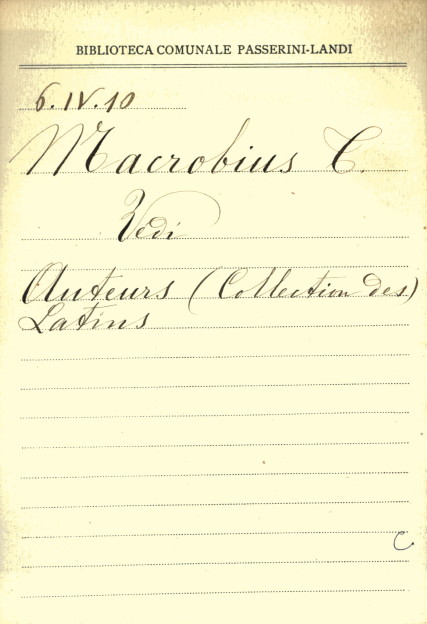 BIBLIOTECA COMUNALE PASSERINI-LANDI
6.IV.10
Macrobius C.
Vedi
Auteurs (Collection des)
Latins
C